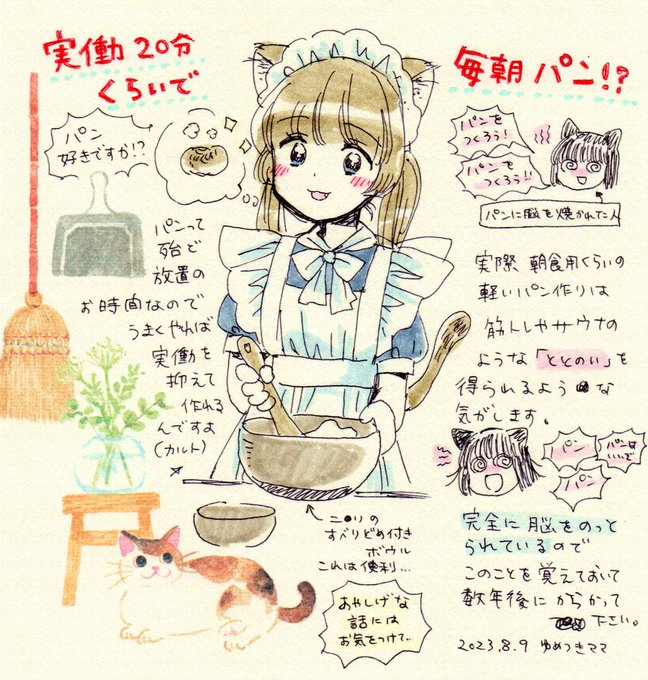 実働20分
くらいで
毎朝パン!?
パン
好きですか!?
パンって
殆ど
放置の
お時間なので
うまくやれば
実働を
抑えて
作れる
んですよ
(カルト)
ニ●リの
すべりどめ付き
ボウル
これは便利…
あやしげな
話には
お気をつけて…
パンを
つくろう!
パンを
つくろう!!
パンに脳を焼かれた人
実際 朝食用くらいの
軽いパン作りは
筋トレやサウナの
ような「ととのい」を
得られるような
気がします。
パン
パンは
いいぞ
パン
完全に脳をのっと
られているので
このことを覚えておいて
数年後にからかって
下さい。
2023.8.9 ゆめつきママ